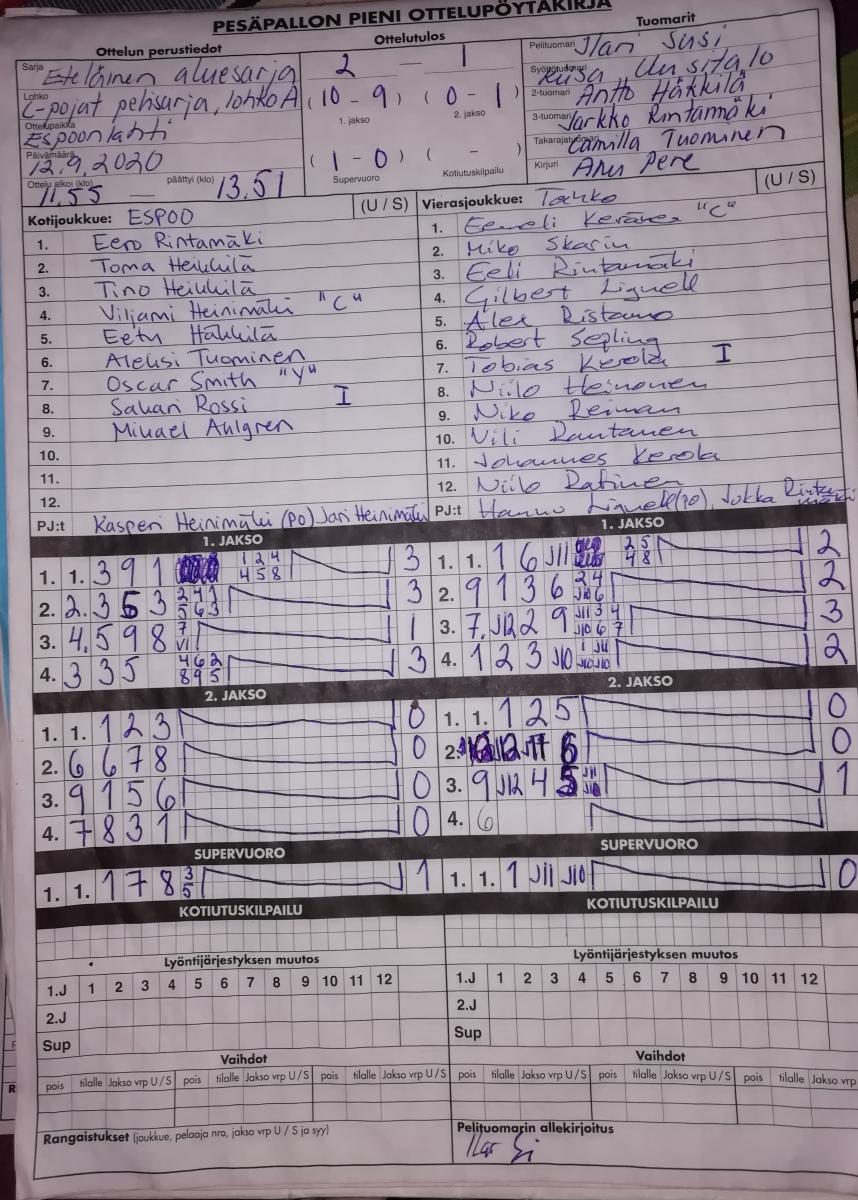 PESÄPALLON PIENI OTTELUPÖYTÄKIRJA
Ottelun perustiedot
Sarja Eteläinen aluesarja
Lohko C-pojat pelisarja, lohko A
Ottelupaikka Espoonlahti
Päivämäärä 12.9.2020
Ottelu alkoi (klo) 11.55 — päättyi (klo) 13.51
Ottelutulos
2 — 1
(10 - 9) (0 - 1)
1. jakso 2. jakso
(1 - 0) ( - )
Supervuoro Kotiutuskilpailu
Tuomarit
Pelituomari Ilari Susi
Syöttötuomari Uusitalo
2-tuomari Antto Häkkilä
3-tuomari Jarkko Rintamäki
Takarajatuomari Camilla Tuominen
Kirjuri Anu Pere
Kotijoukkue: ESPOO (U / S)
1. Eero Rintamäki
2. Toma Heikkilä
3. Tino Heikkilä
4. Viljami Heinimäki "C"
5. Eetu Häkkilä
6. Aleksi Tuominen
7. Oscar Smith "Y"
8. Sakari Rossi I
9. Mikael Ahlgren
10.
11.
12.
PJ:t Kasperi Heinimäki (PO) Jari Heinimäki
Vierasjoukkue: Tahko (U / S)
1. Eemeli Keränen "C"
2. Miko Skarin
3. Eeli Rintamäki
4. Gilbert Lignell
5. Alex Ristamo
6. Robert Sepling
7. Tobias Kerola I
8. Niilo Heinonen
9. Niko Reiman
10. Vili Rantanen
11. Johannes Kerola
12. Niilo Ratinen
PJ:t Hannu Lignell (PO), Jukka Rintamäki
1. JAKSO
1. 1. 3 9 1 1 2 4 4 5 8 3
2. 2. 3 5 3 2 4 1 5 6 3 3
3. 4. 5 9 8 7 VI 1
4. 3 3 5 4 6 2 8 9 5 3
1. JAKSO
1. 1. 1 6 J11 2 5 4 8 2
2. 9 1 3 6 2 4 J10 6 2
3. 7. J12 2 9 J11 3 4 J10 6 7 3
4. 1 2 3 J10 1 J11 J10 J10 2
2. JAKSO
1. 1. 1 2 3 0
2. 6 6 7 8 0
3. 9 1 5 6 0
4. 7 8 3 1 0
2. JAKSO
1. 1. 1 2 5 0
2. J12 J11 6 0
3. 9 J12 4 5 J11 J10 1
4. 6
SUPERVUORO
1. 1. 1 7 8 3 5 1
SUPERVUORO
1. 1. 1 J11 J10 0
KOTIUTUSKILPAILU
KOTIUTUSKILPAILU
Lyöntijärjestyksen muutos
1.J 1 2 3 4 5 6 7 8 9 10 11 12
2.J
Sup
Lyöntijärjestyksen muutos
1.J 1 2 3 4 5 6 7 8 9 10 11 12
2.J
Sup
Vaihdot
pois tilalle Jakso vrp U / S pois tilalle Jakso vrp U / S pois tilalle Jakso vrp U / S
Vaihdot
pois tilalle Jakso vrp U / S pois tilalle Jakso vrp U / S pois tilalle Jakso vrp
Rangaistukset (joukkue, pelaaja nro, jakso vrp U / S ja syy)
Pelituomarin allekirjoitus